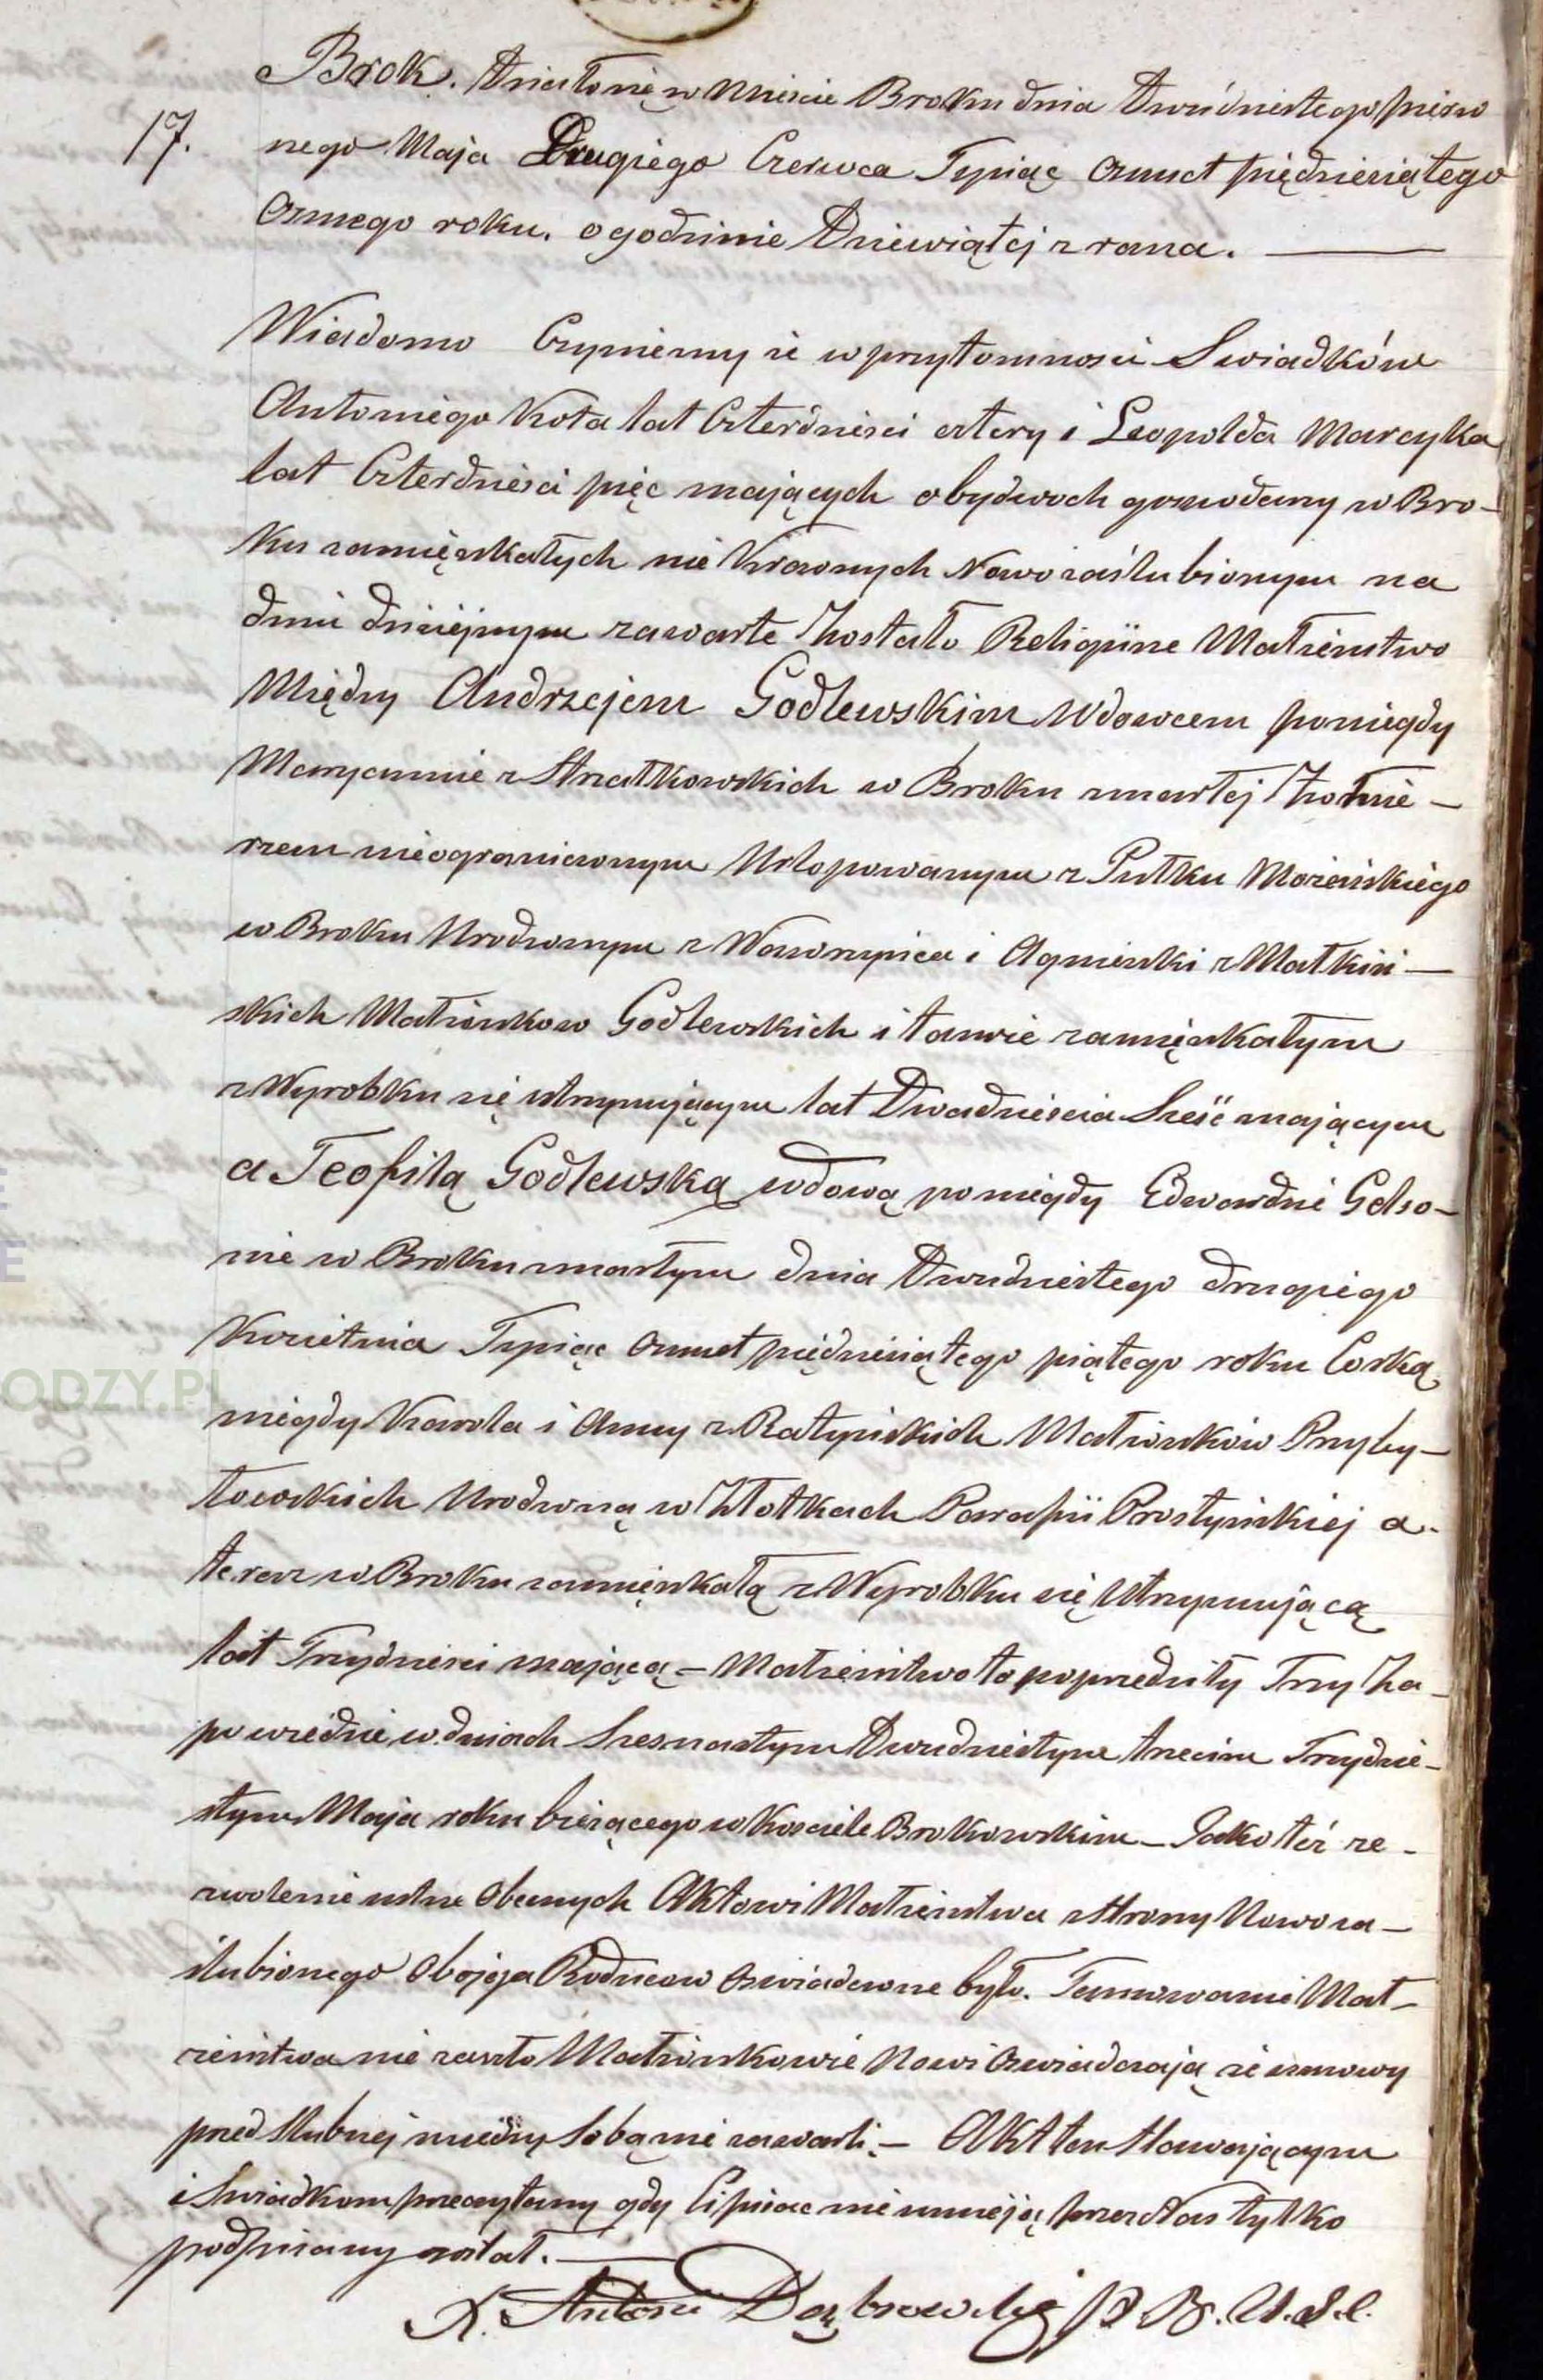 Brok. Działo się w Mieście Broku dnia Dwudziestego pierw
17. nego Maja Drugiego Czerwca Tysiąc Osmset piędziesiątego
Osmego roku, o godzinie Dziewiątej z rana. —
Wiadomo Czyniemy że w przytomnosci Swiadków
Antoniego Kota lat Czterdziesci cztery i Leopolda Marcyka
lat Czterdziesci pięc mających obydwoch gospodarzy w Bro-
ku zamięszkałych nie Krewnych Nowozaślubionym na
dniu dzisiejszym zawarte Zostało Religijne Małżenstwo
Między Andrzejem Godlewskim Wdowcem po niegdy
Maryannie z Strzałkowskich w Broku zmarłej Żołnie-
rzem nieograniczonym Urlopowanym z Pułku Możaiskiego
w Broku Urodzonym z Wawrzyńca i Agnieszki z Małkiń-
skich Małżonkow Godlewskich i tamże zamięszkałym
z Wyrobku się utrzymującym lat Dwadziescia Sześć mającym
a Teofilą Godlewską wdową po niegdy Edwardzie Gelso-
nie w Broku zmarłym dnia Dwudziestego drugiego
Kwietnia Tysiąc Osmset piędziesiątego piątego roku Corką
niegdy Karola i Anny z Ratyńskich Małżonków Przyby-
towskich Urodzoną w Złotkach Parafii Prostyńskiej a
teraz w Broku zamięszkałą z Wyrobku się Utrzymującą
lat Trzydziesci mającą — Małżeństwo to poprzedziły Trzy Za-
powiedzie w dniach Szesnastym Dwudziestym trzecim Trzydzie-
stym Maja roku bieżącego w Kosciele Brokowskim — Jako też ze-
zwolenie ustne Obecnych Aktowi Małżeństwa z strony Nowoza-
ślubionego Obojga Rodzicow Oswiadczone było. Tamowanie Mał-
żeństwa nie zaszło Małżonkowie Nowi Oswiadczają że umowy
przed Slubnej między Sobą nie zawarli. — Akt ten Stawającym
i Swiadkom przeczytany gdy Pisać nie umieją przez Nas tylko
podpisany został. —
X. Antoni Dąbrowski P. B. U. S. C.
ODZY.PL